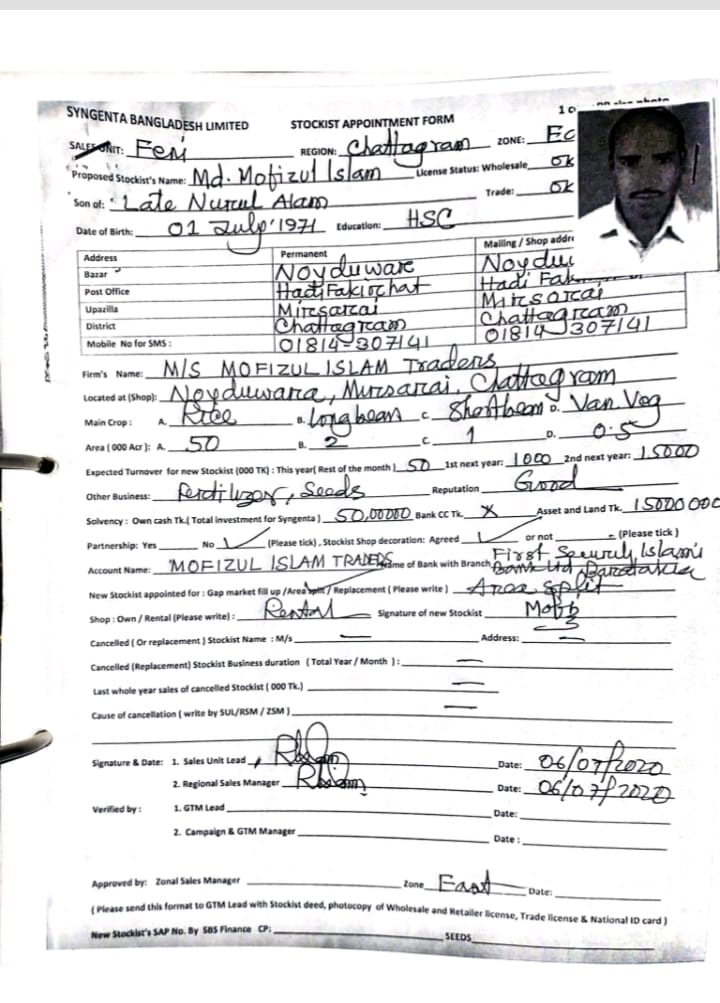 SYNGENTA BANGLADESH LIMITED STOCKIST APPOINTMENT FORM
SALES UNIT: Feni REGION: Chattagram ZONE:
Proposed Stockist's Name: Md. Mofizul Islam License Status: Wholesale Ok
Son of: Late Nurul Alam Trade: Ok
Date of Birth: 01 July '1971 Education: HSC
Address Permanent Mailing / Shop addre
Bazar Noyduware Noydu
Post Office Hadi Fakirhat Hadi Fak
Upazilla Mirsarai Mirsarai
District Chattagram Chattagram
Mobile No for SMS : 01814-307141 01814-307141
Firm's Name: M/S MOFIZUL ISLAM Traders
Located at (Shop): Noyduwara, Mirsarai, Chattagram
Main Crop : A. Rice B. Longbean C. D. Van. Veg
Area ( 000 Acr ): A. 50 B. 2 C. 1 D. 0.5
Expected Turnover for new Stockist (000 TK) : This year( Rest of the month ) 50 1st next year: 1000 2nd next year: 15000
Other Business: Ferdilizer, Seeds Reputation Good
Solvency : Own cash Tk.( Total investment for Syngenta ) 50,00000 Bank CC Tk. X Asset and Land Tk. 15000000
Partnership: Yes No ✓ (Please tick), Stockist Shop decoration: Agreed ✓ or not (Please tick)
Account Name: MOFIZUL ISLAM TRADERS Name of Bank with Branch First Security Islami Bank Ltd,
New Stockist appointed for : Gap market fill up /Area split / Replacement ( Please write ) Area split
Shop : Own / Rental (Please write) : Rental Signature of new Stockist
Cancelled ( Or replacement ) Stockist Name : M/s — Address: —
Cancelled (Replacement) Stockist Business duration ( Total Year / Month ) : —
Last whole year sales of cancelled Stockist ( 000 Tk.) —
Cause of cancellation ( write by SUL/RSM / ZSM ) —
Signature & Date: 1. Sales Unit Lead Date: 06/07/2020
2. Regional Sales Manager Date: 06/07/2020
Verified by : 1. GTM Lead Date:
2. Campaign & GTM Manager Date :
Approved by: Zonal Sales Manager Zone East Date:
( Please send this format to GTM Lead with Stockist deed, photocopy of Wholesale and Retailer license, Trade license & National ID card )
New Stockist's SAP No. By SBS Finance CP: SEEDS